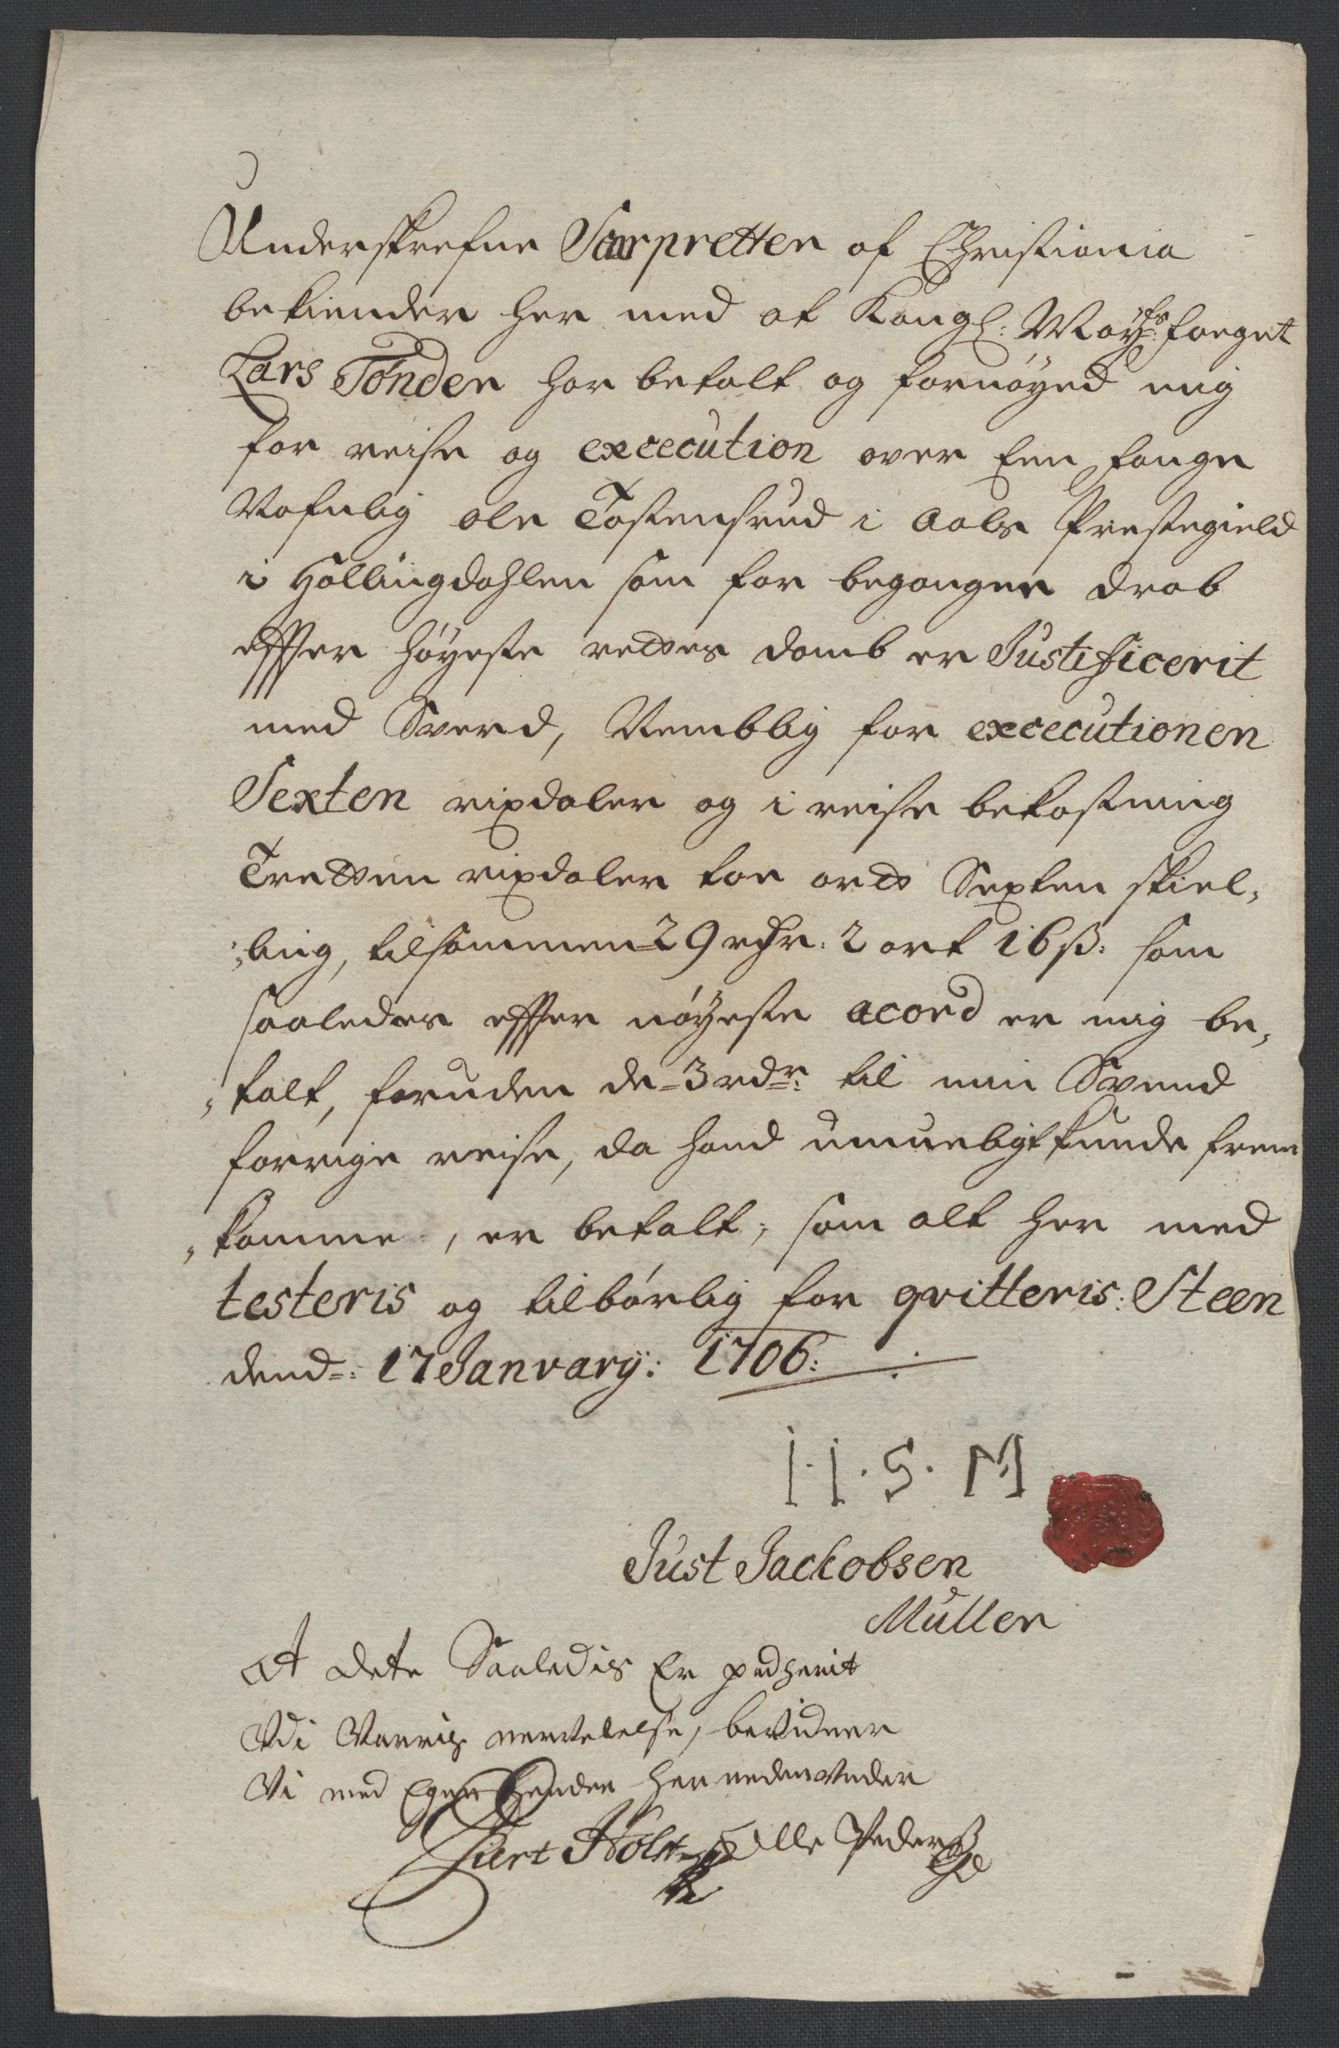 Underskrefne Scarpretter af Christiania
bekiender her med at Kongl: Mayts: foeget
Lars Tønder har betalt og fornøyed mig
for reise og excecution over Een fange
Nafnlig ole Tostensrud i Aals Prestegield
i Hallingdahlen som for begangen drab
effter høyeste rettes domb er Justificerit
med Sverd, Nemblig for excecutionen
Sexten rixdaler og i reise bekostning
Tretten rixdaler toe ort Sexten skiel-
-ling, tilsammen 29 rdr: 2 ort 16 ß: som
saaledes effter nøyeste acord er mig be-
-talt, foruden de 3 rdr: til min Svend
forrige reise, da hand umueligt kunde frem
-komme, er betalt, som alt her med
testeris og tilbørlig for qvitteris: Steen
dend: 17 Janvary: 1706:
H. S. M
Just Jackobsen
Müller
At dete Saaledis Er passerit
Udi Vorris nerverelse, bevidner
Vi med Egne hender her nedenunder
Siert Holst Olle Peders